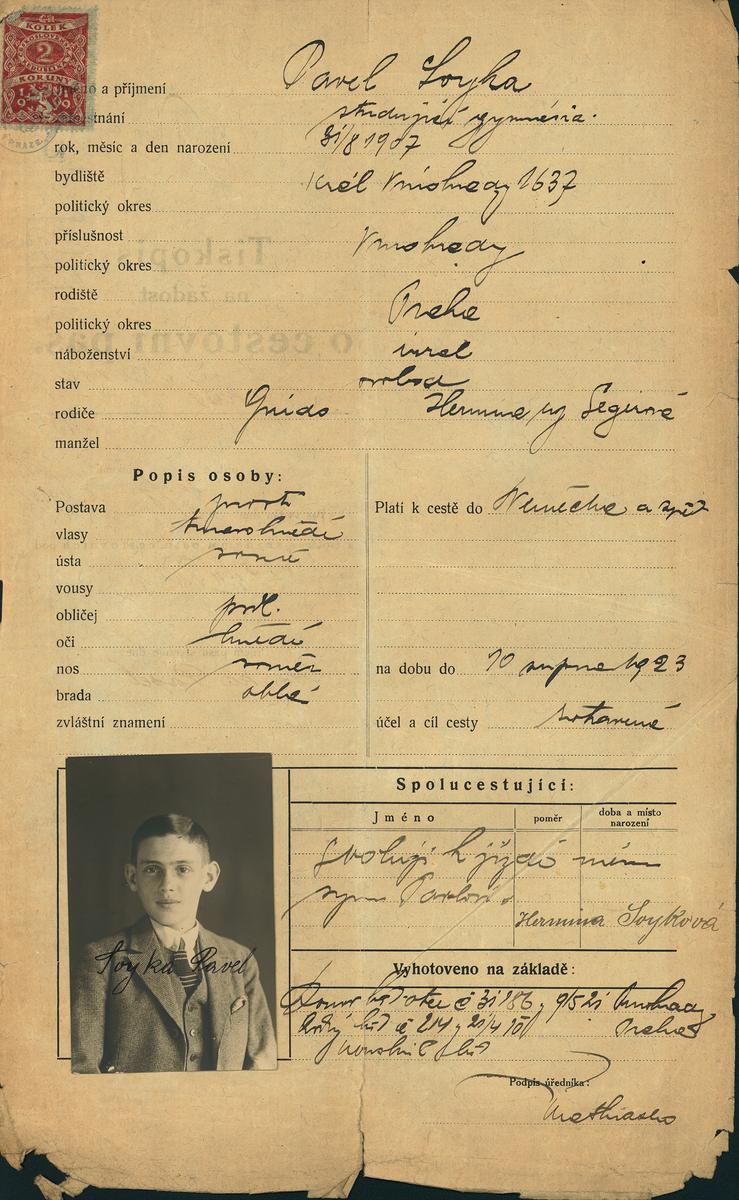 KOLEK
2
KORUNY
a příjmení Pavel Soyka
studující gymnasia.
rok, měsíc a den narození 31/8 1907
bydliště Král Vinohrady 1637
politický okres
příslušnost Vinohrady
politický okres
rodiště Praha
politický okres
náboženství israel
stav svobod
rodiče Guido Hermina
manžel
Popis osoby:
Postava prost
vlasy tmavohnědé
ústa
vousy
obličej podl.
oči hnědé
nos souměr
brada oblá
zvláštní znamení
Platí k cestě do Německa a zpět
na dobu do 10 srpna 1923
účel a cíl cesty zotavené
Spolucestující:
Jméno poměr doba a místo narození
Svoluji k jízdě mému
synu Pavlovi.
Hermina Soyková
Soyka Pavel
Vyhotoveno na základě:
Domov list otce č 31186 9/5 21 Vinohrady
list č 214 21/4 Praha
Podpis úředníka: